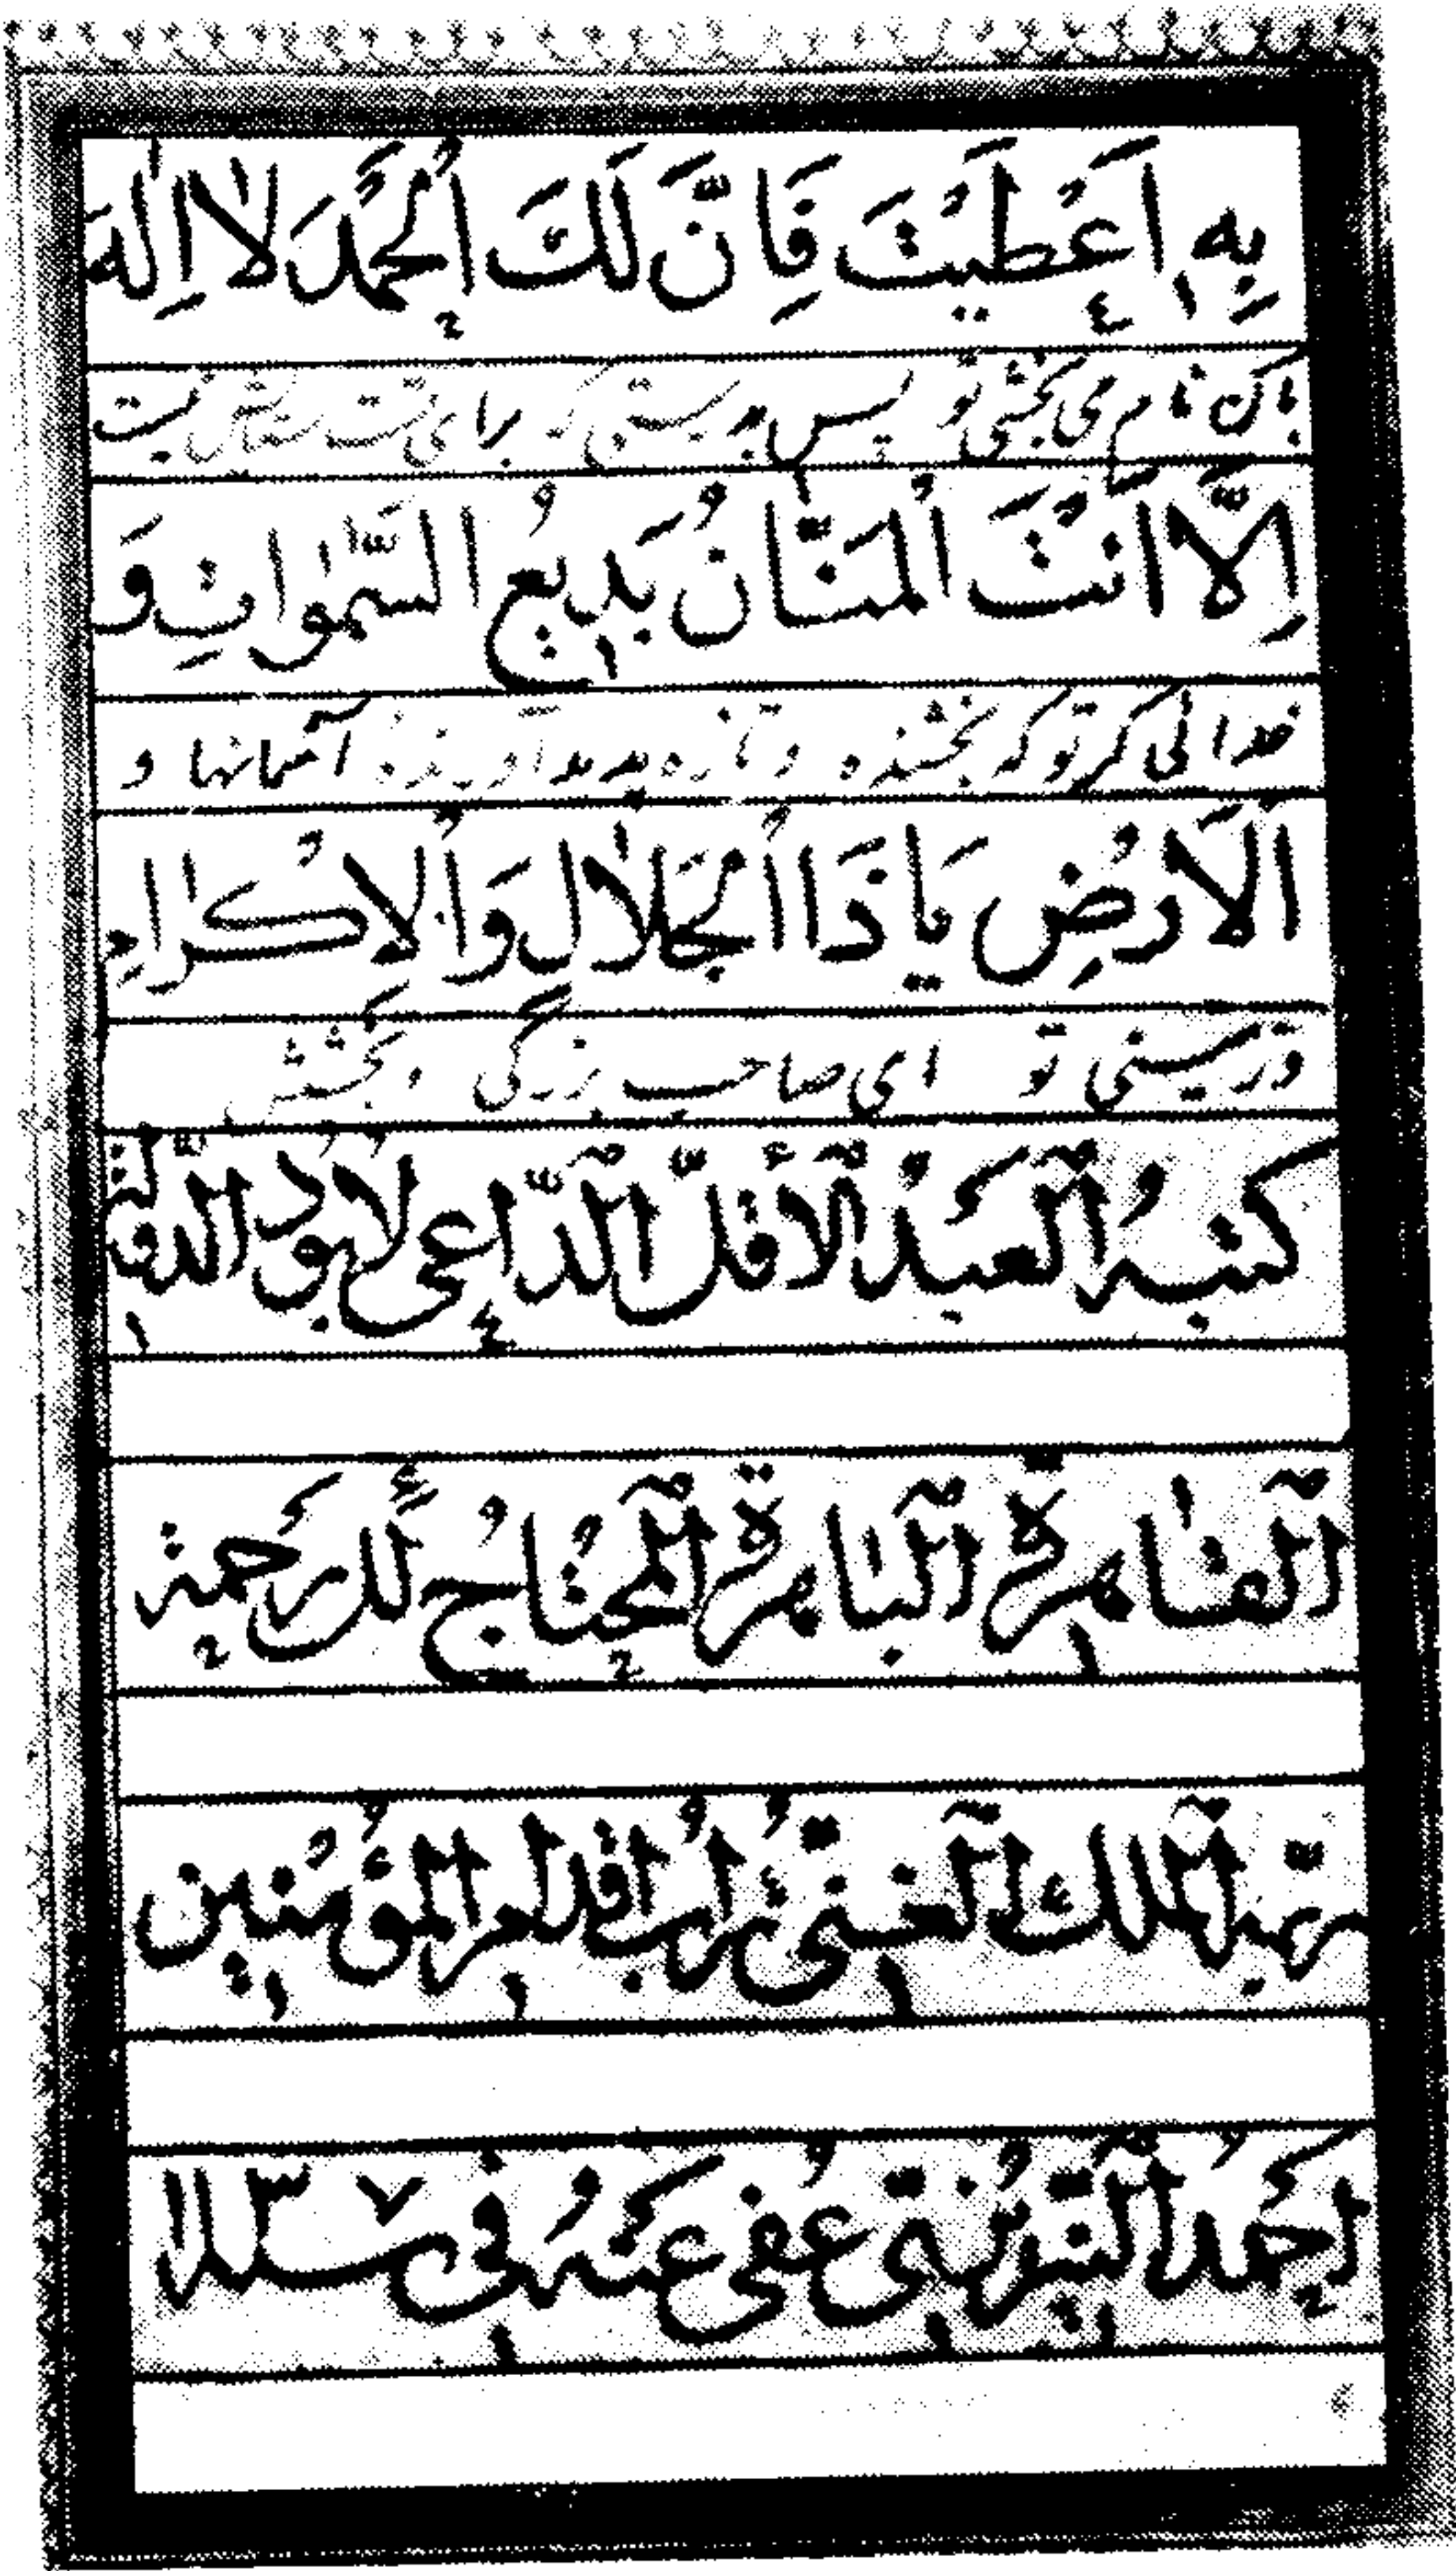 بِهِ اَعْطَیْتَ فَاِنَّ لَكَ الْحَمْدَ لَا اِلٰهَ
بآن نام می بخشی تو پس بدرستیکه برای تست ستایش نیست
اِلَّا اَنْتَ الْمَنَّانُ بَدِیْعُ السَّمٰوَاتِ وَ
خدائی مگر تو که بخشنده و تازه پدید آورنده آسمانها و
الْاَرْضِ یَا ذَا الْجَلَالِ وَالْاِكْرَامِ
و زمینی تو ای صاحب بزرگی و بخشش
كَتَبَهُ الْعَبْدُ الْاَقَلُّ الدَّاعی لابود الدولة
القاهرة الباهرة المحتاجُ الی رحمة
ربه الملك الغنی تراب اقدام المؤمنین
احمد التبریزی عفی عنه فی سنه ۱۱۳۷